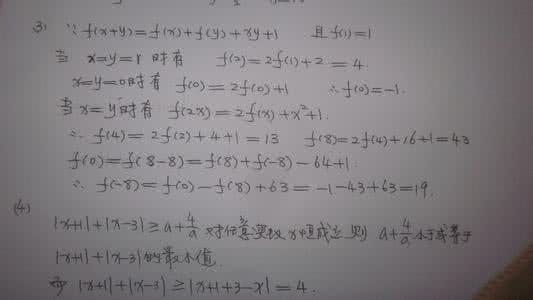 3) ∵ f(x+y)=f(x)+f(y)+xy+1 且f(1)=1
当 x=y=1时有 f(2)=2f(1)+2=4.
x=y=0时有 f(0)=2f(0)+1 ∴f(0)=-1.
当x=y时有 f(2x)=2f(x)+x²+1.
∴ f(4)=2f(2)+4+1=13 f(8)=2f(4)+16+1=43
f(0)=f(8-8)=f(8)+f(-8)-64+1
∴ f(-8)=f(0)-f(8)+63=-1-43+63=19.
(4)
|x+1|+|x-3|≥a+4/a 对任意实数x恒成立 则 a+4/a 小于或等于
|x+1|+|x-3|的最小值.
而 |x+1|+|x-3|≥|x+1+3-x|=4.